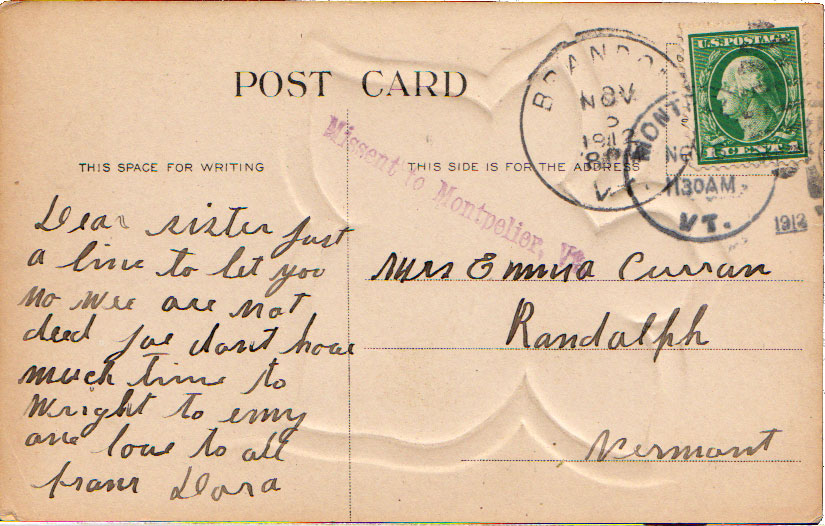 POST CARD
THIS SPACE FOR WRITING
THIS SIDE IS FOR THE ADDRESS
Missent to Montpelier, Vt.
BRANDON
NOV
5
1912
8 PM
VT.
MONT
1130AM
VT.
1912
U.S.POSTAGE
1 CENT 1
Dear sister Just
a line to let you
no wee are not
deed Joe dont have
much time to
Wright to enny
one love to all
from Dora
Mrs Emma Curran
Randolph
Vermont